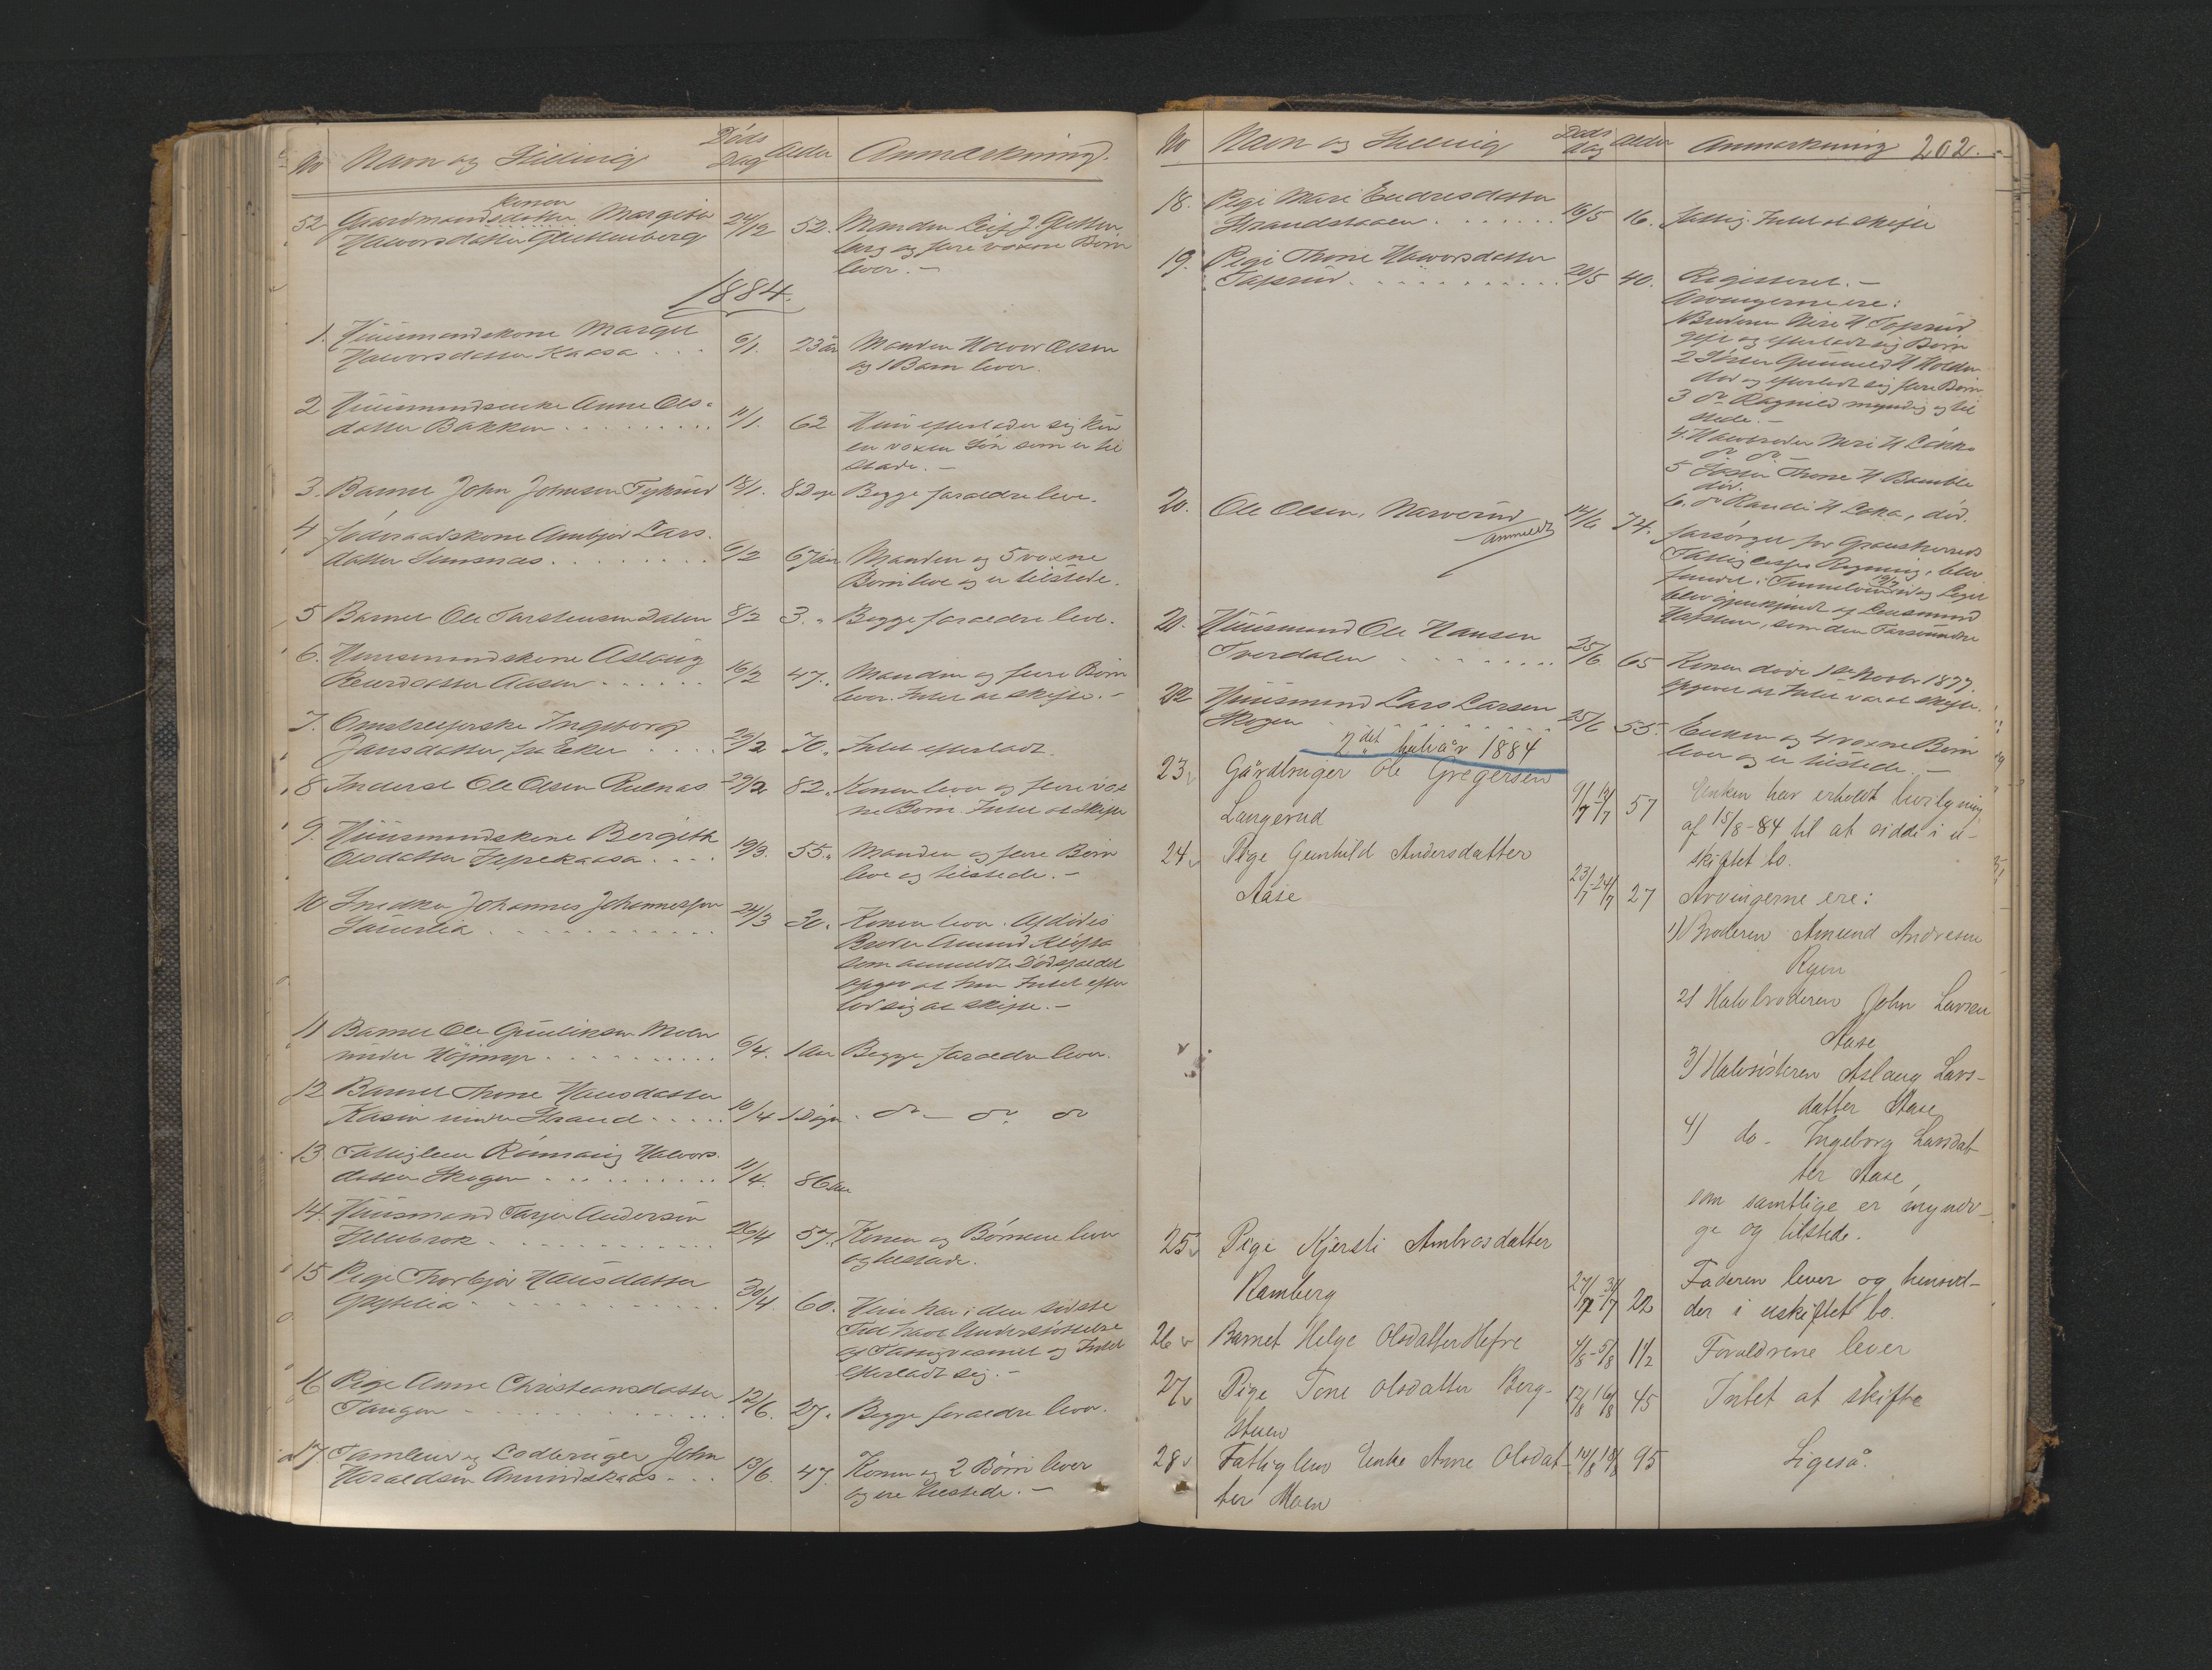 No Navn og Stilling Døds Dag Alder Anmærkning.
52. Gaardmandskonen Margit
Halvorsdatter Guttenberg 24/12 52. Manden Leif J. Gutten
berg og flere voxne Børn
lever. –
1884.
1. Huusmandskone Margit
Halvorsdatter Kaasa . . . 6/1. 23 år Manden Halvor Olsen
og 1 Barn lever.
2 Huusmandsenke Anne Ols-
datter Bakken . . . . 11/1. 62 Hun efterlader sig kun
en voxen Søn som er til
stede. –
3. Barnet John Johnsen 18/1. 8 Dage Begge forældre leve.
4 Føderaadskone Anbjør Lars-
datter . . . . 6/2 67 år Manden og 5 voxne
Børn leve og er tilstede.
5 Barnet Ole Torstensen Dalen 8/2 3. " Begge forældre leve.
6. Huusmandskone Aslaug
datter Aasen . . . . 16/2 47. " Manden og flere Børn
lever. Intet at skifte. –
7. Omstreiferske Ingeborg
Jansdatter fra Eker . . . 29/2 70. " Intet efterladt.
8 Inderst Ole Olsen 29/2 82. " Konen lever og flere vox
ne Børn. Intet at skifte
9. Huusmandskone Bergith
Olsdatter . . . 19/3. 55. " Manden og flere Børn
leve og tilstede. –
10 Snedker Johannes Johannessen
. . . . 24/3 30. Konen lever. Afdødes
Broder Amund
som anmeldte Dødsfaldet
opgav at han Intet efter
lod sig at skifte. –
11 Barnet Ole Gulliksen Moen
under Højmyr . . . . 6/4. 1 Aar Begge forældre lever.
12 Barnet Thone Hansdatter
Kasin under Strand . . . . 10/4 1 Døgn. do – do do
13. Fattiglem Rønnaug Halvors-
datter Skogen . . . . 11/4. 86 Aar
14. Huusmand Tarjer Andersen
. . . . 26/4 57. " Konen og Børnene lever
og tilstede.
15 Pige Thorbjør Hansdatter
. . . . 30/4. 60. Hun har i den sidste
Tid havt Understøttelse
af Fattigvæsenet og Intet
efterladt sig. –
16 Pige Anne Christiansdatter
Tangen . . . . 12/6. 27. " Begge forældre lever.
17 og Ledbruger John
Haraldsen Amundskaas . . . 13/6. 47. Konen og 2 Børn lever
og ere tilstede. –
No Navn og Stilling Døds dag Alder Anmærkning 202.
18. Pige Mari Endresdatter
. . . . 16/5 16. fattig. Intet at skifte
19. Pige Thone Halvorsdatter
Tofsrud . . . . 20/5 40. Registeret. –
Arvingerne ere:
1 Broderen H Tofsrud
gift og efterladt sig Børn
2 Søster Gunnild H
død og efterladt sig flere Børn
3 do Ragnild myndig og til
stede. –
4. Halvbroder H
do do –
5 Søster Thone H Bamble
død.
6. do Randi H , død.
20. Ole Olsen,
anmeldt 12/6 74. forsørget for Gransherreds
Fattigkasses Regning, blev
fundet i 19/7 og Liget
blev gjenkjendt af Lensmand
, som den Forsvundne
21. Huusmand Ole Hansen
Tverdalen . . . . 25/6. 65 Konen døde 1ste Novbr 1877.
opgivet at Intet var at skifte.
22 Huusmand Lars Larsen
Skogen . . . . 25/6 55. Enken og 4 voxne Børn
lever og er tilstede. –
2det halvår 1884
23. Gårdbruger Ole Gregersen
Langerud 9/7 – 12/7 57 Enken har erholdt bevilgning
af 15/8-84 til at sidde i u-
skiftet bo.
24 Pige Gunhild Andersdatter
Aase 23/7 – 24/7 27 Arvingerne ere:
1) Broderen Amund Andresen
Ryen
2) Halvbroderen John Larsen
Aase
3) Halvsösteren Aslaug Lars-
datter Aase
4) do – Ingeborg Larsdat-
ter Aase,
som samtlige er myndi-
ge og tilstede.
25 Pige Kjersti Ambrosdatter
Ramberg 27/7 – 31/7 22 Faderen lever og hensid-
der i uskiftet bo.
26 Barnet Helge Olsdatter Hefre 4/8 – 5/8 1 1/2 Forældrene lever
27 Pige Tone Olsdatter Berg-
stuen 12/8 16/8 45 Intet at skifte
28 Fattiglem Enke Anne Olsdat-
ter Moen 14/8 18/8 95 Ligeså.